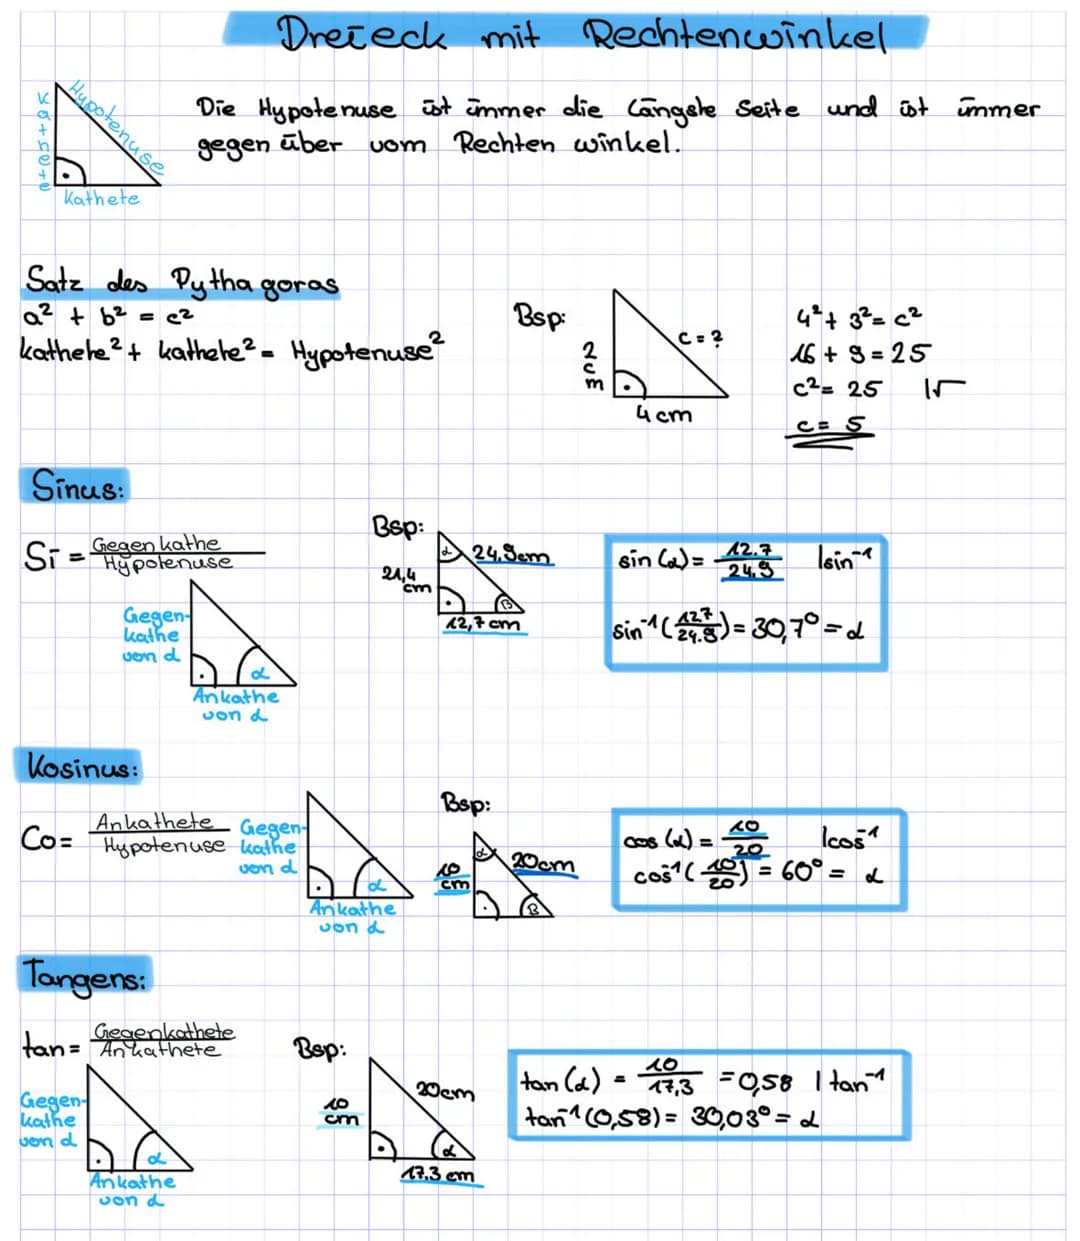 Dreieck mit Rechtenwinkel
Kathete
Hypotenuse
Kathete
Die Hypotenuse ist immer die Längste Seite und ist immer
gegen über vom Rechten winkel.
Satz des Pythagoras
a² + b² = c²
kathete² + kathete² = Hypotenuse²
Bsp:
2
c
m
c = ?
4 cm
4² + 3² = c²
16 + 9 = 25
c² = 25 |√
c = 5
Sinus:
Si = Gegenkathe
Hypotenuse
Gegen-
kathe
von α
α
Ankathe
von α
Bsp:
α
24,9cm
21,4
cm
β
12,7 cm
sin (α) = 12.7 / 24.9 |sin⁻¹
sin⁻¹ (127 / 24.9) = 30,7° = α
Kosinus:
Co = Ankathete
Hypotenuse
Gegen-
kathe
von α
α
Ankathe
von α
Bsp:
α
20cm
10
cm
β
cos (α) = 10 / 20 |cos⁻¹
cos⁻¹ (10 / 20) = 60° = α
Tangens:
tan = Gegenkathete
Ankathete
Gegen-
kathe
von α
α
Ankathe
von α
Bsp:
20cm
10
cm
α
17,3 cm
tan (α) = 10 / 17,3 = 0,58 | tan⁻¹
tan⁻¹ (0,58) = 30,03° = α